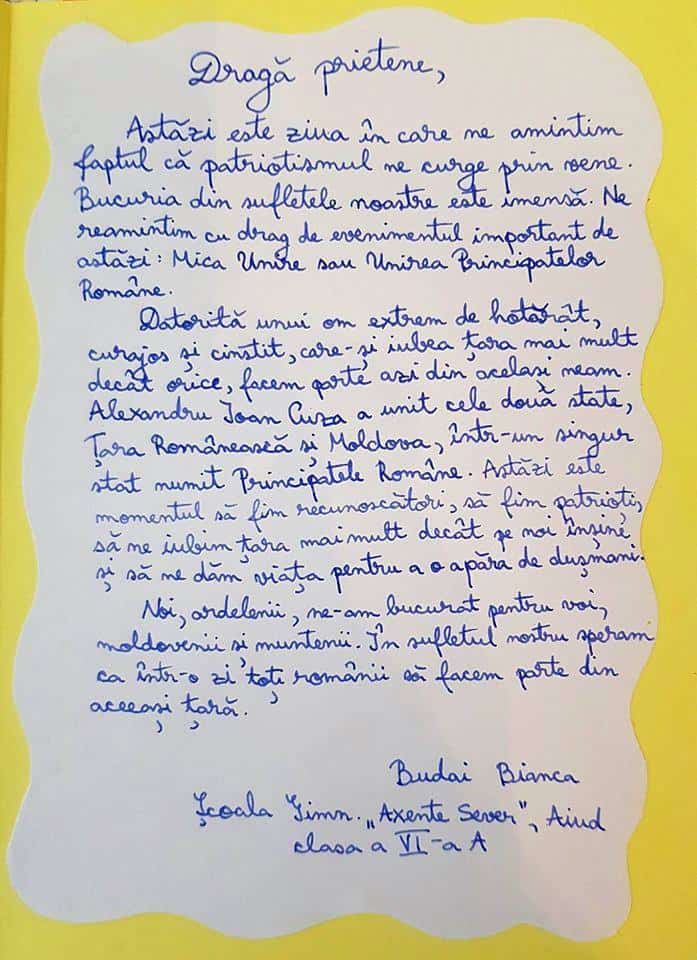 Dragă prietene,
Astăzi este ziua în care ne amintim
faptul că patriotismul ne curge prin vene.
Bucuria din sufletele noastre este imensă. Ne
reamintim cu drag de evenimentul important de
astăzi: Mica Unire sau Unirea Principatelor
Române.
Datorită unui om extrem de hotărât,
curajos și cinstit, care-și iubea țara mai mult
decât orice, facem parte azi din același neam.
Alexandru Ioan Cuza a unit cele două state,
Țara Românească și Moldova, într-un singur
stat numit Principatele Române. Astăzi este
momentul să fim recunoscători, să fim patrioți,
să ne iubim țara mai mult decât pe noi înșine
și să ne dăm viața pentru a o apăra de dușmani.
Noi, ardelenii, ne-am bucurat pentru voi,
moldovenii și muntenii. În sufletul nostru speram
ca într-o zi toți românii să facem parte din
aceeași țară.
Budai Bianca
Școala Gimn. „Axente Sever", Aiud
clasa a VI-a A